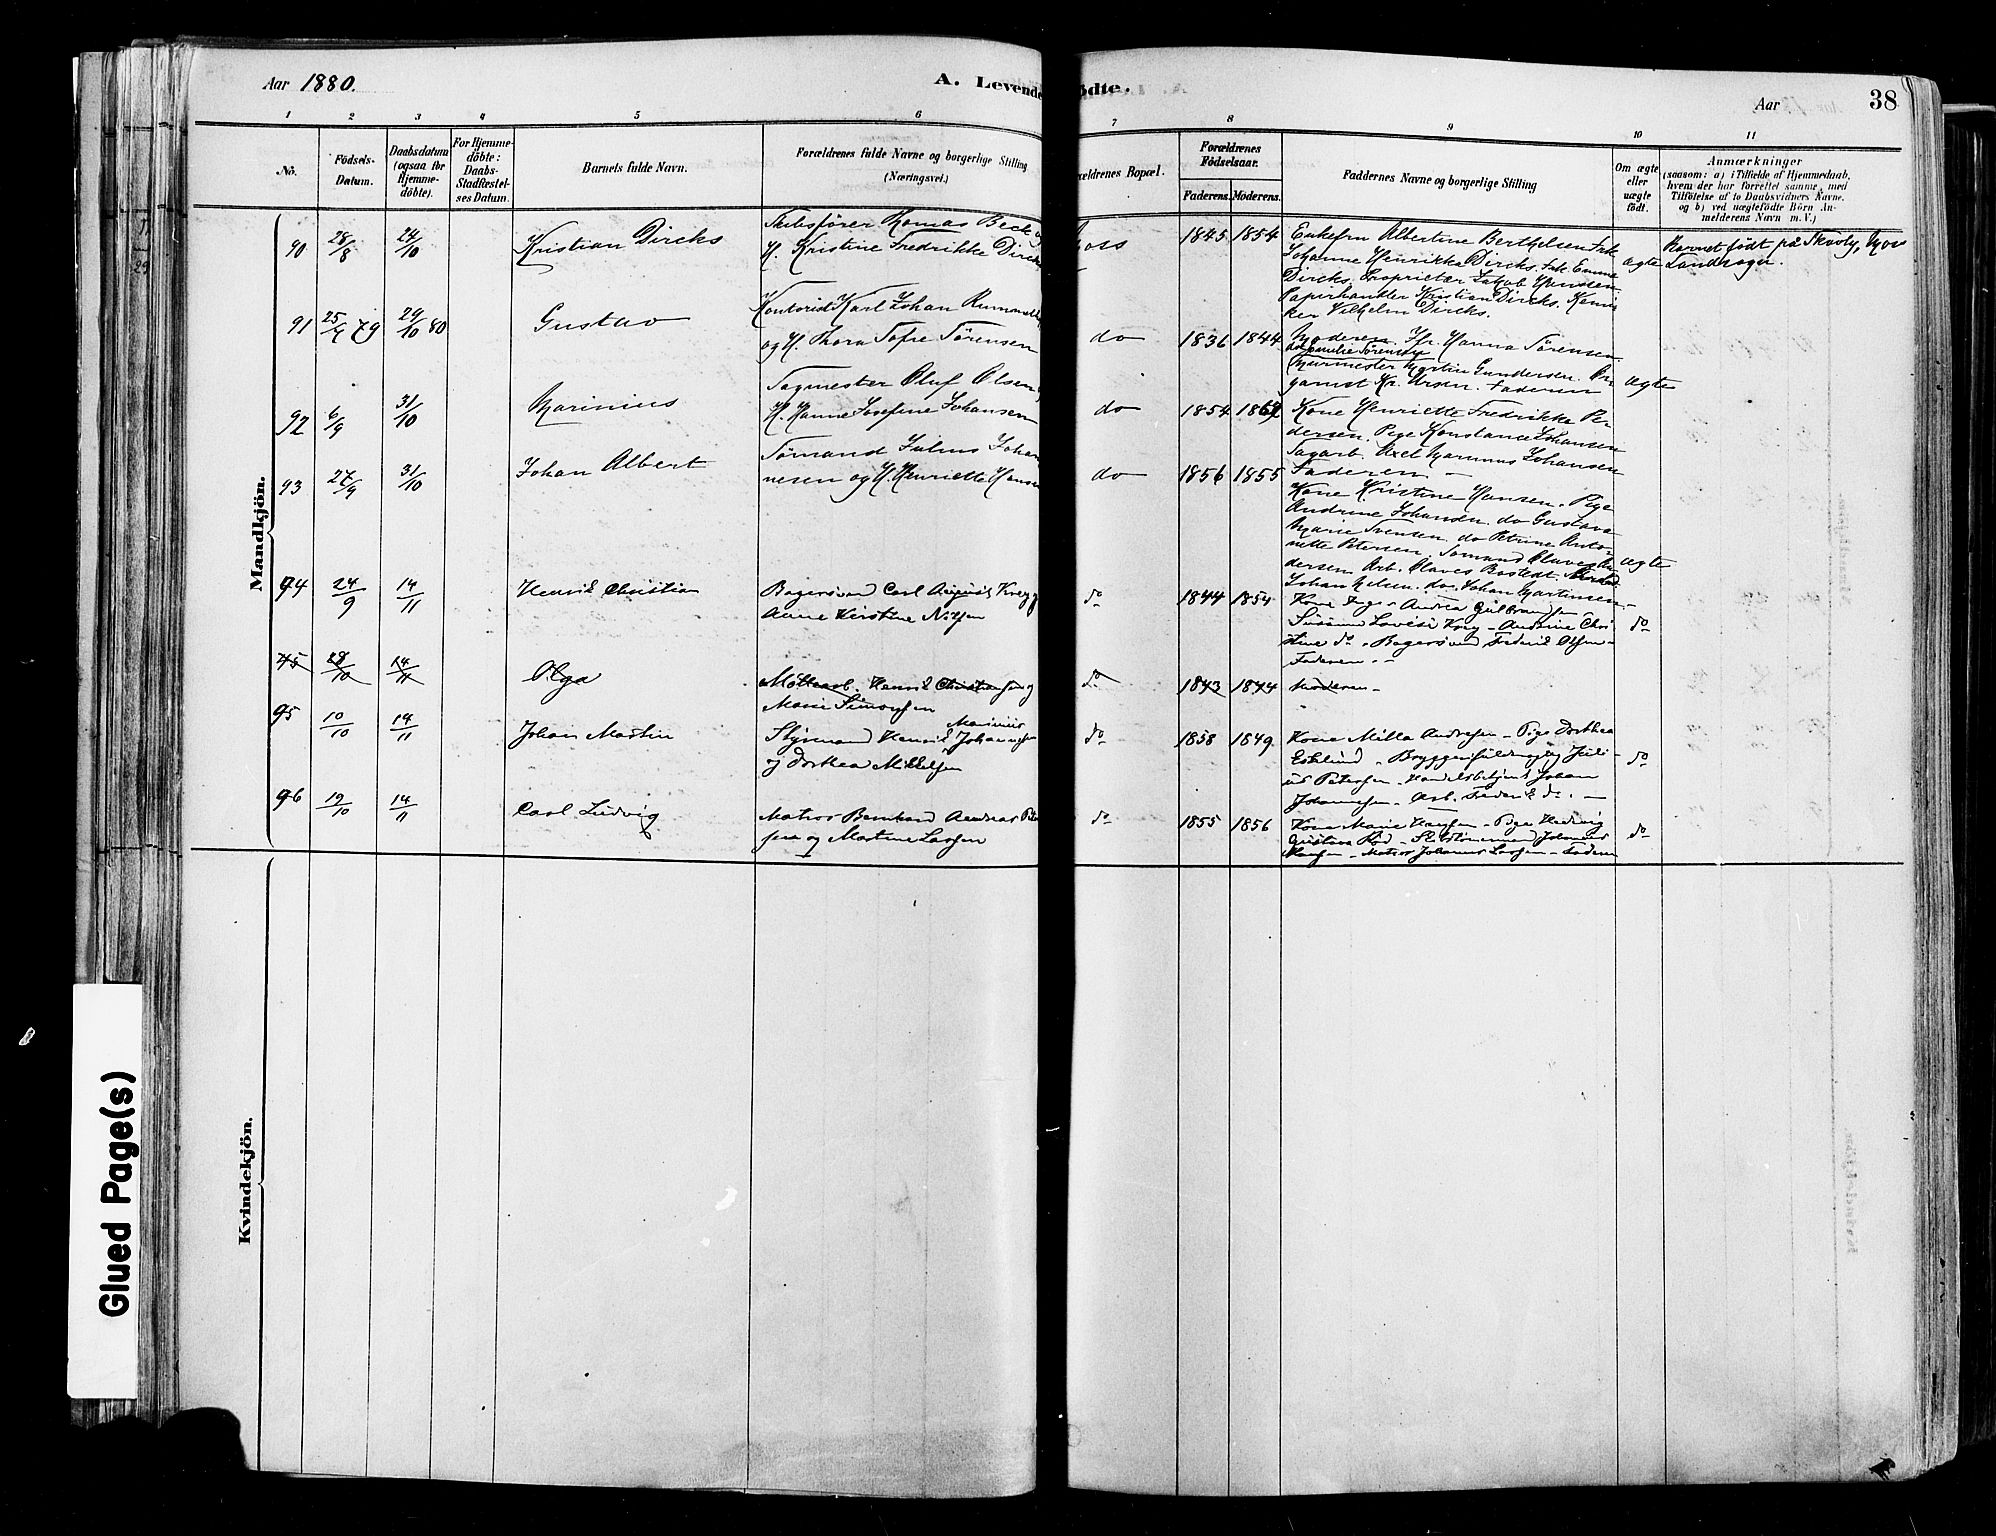 Aar 1880.
A. Levende
ødte.
Aar
38
1 2 3 4 5 6 7 8 9 10 11
No.
Födsels-Datum.
Daabsdatum (ogsaa for Hjemmedöbte).
For Hjemmedöbte: Daabs-Stadfæstelses Datum.
Barnets fulde Navn.
Forældrenes fulde Navne og borgerlige Stilling (Næringsvei.)
ældrenes Bopæl.
Forældrenes Födselsaar.
Faderens. Moderens.
Faddernes Navne og borgerlige Stilling
Om ægte eller uægte födt.
Anmærkninger
(saasom: a) i Tilfælde af Hjemmedaab, hvem der har forrettet samme, med Tilföielse af to Daabsvidners Navne. og b) ved uægtefödte Börn Anmelderens Navn m. V.)
Mandkjön.
90 28/8 24/10 Kristian Dircks
Skibsfører Thomas Beck og
H. Kristine Fredrikke Dircks
Moss 1845 1854
Enkefru Albertine Berthelsen Frk
Johanne Henrikka Dircks. Frk. Emma
Dircks. Proprietær Jakob Hansen
Papirhandler Kristian Dircks. Kemi-
ker Vilhelm Dircks.
ægte
Barnet født på Skovly, Moss
Landsogn.
91 25/4 79 29/10 80 Gustav
Kontorist Karl Johan
og H. Thora Sofie Sörensen
do 1836 1844
Moderen. Jfr. Hanna Sörensen
Murmester Martin Gundersen. Or-
ganist Kr. Faderen
ægte
92 6/9 31/10 Marinius
Sagmester Oluf Olsen
H. Hanne Josefine Johansen
do 1854
Kone Henriette Fredrikke Pe-
dersen. Pige Konstance Johansen
Sagarb. Axel Marinius Johansen
Faderen —
93 27/9 31/10 Johan Albert
Sömand Julius Johan
nesen og H. Henriette Hansen
do 1856 1855
Kone Kristine Hansen. Pige
Andrine Johansen do Gustava
Marie Svensen. do Petrine Anto-
nette Petersen. Sömand Olaves An-
dersen Arb. Olaves Bostedt.
Johan Nilsen. do. Johan Martinsen.
ægte
94 24/9 14/11 Henrik Christian
Bagersvend Carl August Krog
Anne Kirstine Nilsen
do 1844 1854
Kone Inge Andrea Gulbrandsen
Susanne Lovise Krog - Andrine Chri
stine do - Bagersvend Frederik Olsen -
Faderen. -
do
95 28/10 14/11 Olga
Möllearb. Henrik Christensen og
Marie Simonsen
do 1843 1844 Moderen -
95 10/10 14/11 Johan Martin
Styrmand Henrik Marinius Johannesen
og Dorthea Mikkelsen
do 1858 1849
Kone Milla Andresen - Pige Dorthea
Eklund - Bryggerifuldmægtig Juli-
us Petersen - Handelsbetjent Johan
Johannesen - Arb. Frederik do. —
do
96 19/10 14/11 Carl Ludvig
Matros Bernhard Andreas Peter
sen og Martine Larsen
do 1855 1856
Kone Marie Hansen - Pige Hedvig
Gustava Rød - Skibstömmermand Johannes
Hansen - Matros Johannes Larsen - Faderen
do
Kvindekjön.
Glued Page(s)